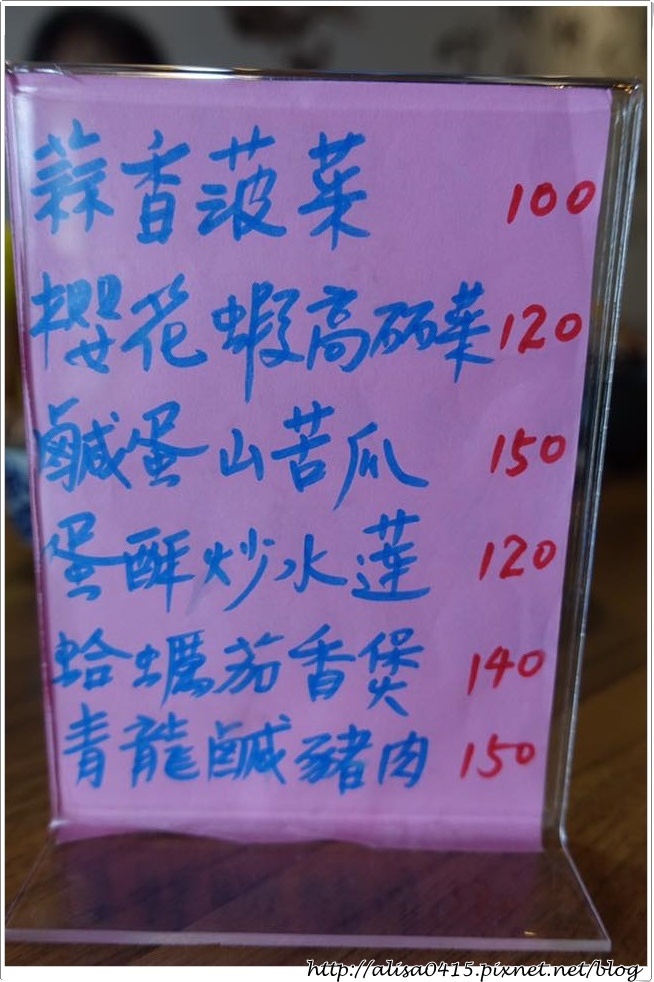 蒜香菠菜 100
櫻花蝦高丽菜 120
鹹蛋山苦瓜 150
蛋酥炒水蓮 120
蛤蠣茄香煲 140
青龍鹹豬肉 150
http://alisa0415.pixnet.net/blog